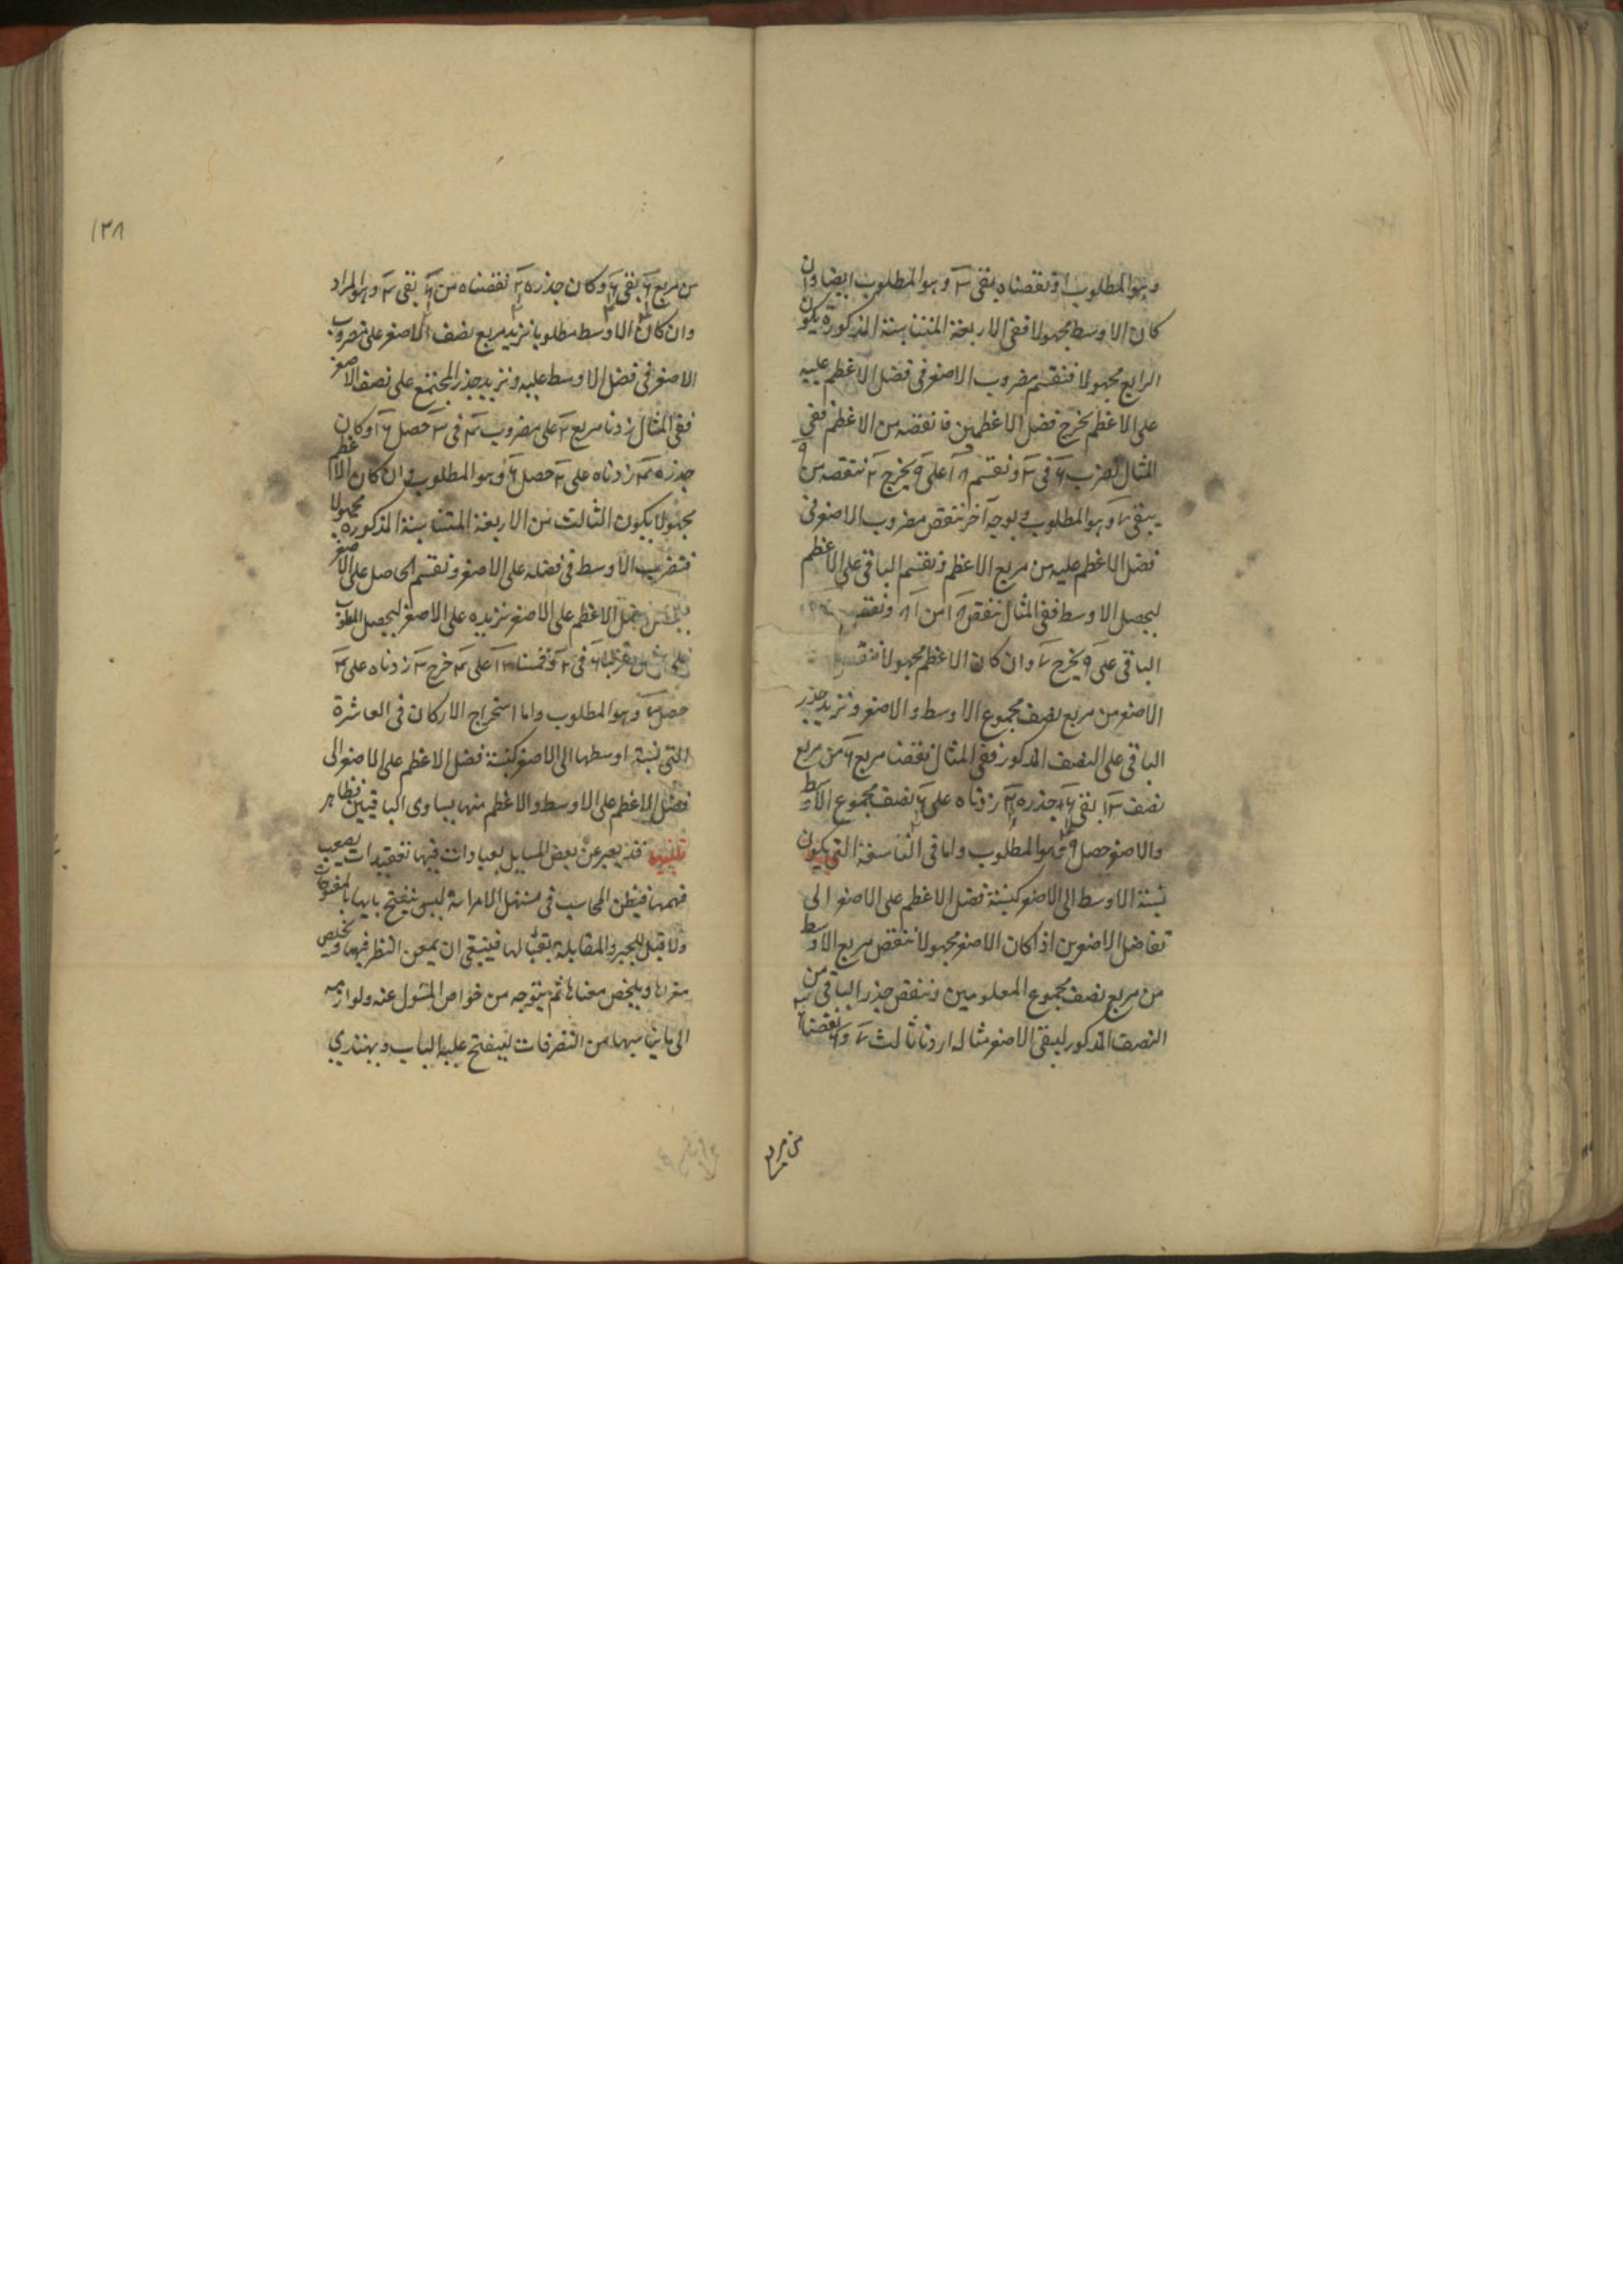 وهو المطلوب او نقصناه يبقى ٣ وهو المطلوب ايضا وان
كان الاوسط مجهولا ففى الاربعة المتناسبة المذكورة يكون
الرابع مجهولا فنقسم مضروب الاصغر فى فضل الاعظم عليه
على الاعظم يخرج فضل الاعظمين فانقصه من الاعظم ففى
المثال نضرب ٦ فى ٣ ونقسم ١٨ على ٩ يخرج ٢ ننقصه من ٩
يبقى ٧ وهو المطلوب وبوجه آخر ننقص مضروب الاصغر فى
فضل الاعظم عليه من مربع الاعظم ونقسم الباقى على الاعظم
ليحصل الاوسط ففى المثال ننقص ١٨ من ٨١ ونقسم
الباقى على ٩ يخرج ٧ وان كان الاعظم مجهولا ننقص
الاصغر من مربع نصف مجموع الاوسط والاصغر ونزيد جذر
الباقى على النصف المذكور ففى المثال نقصنا مربع ٦ من مربع
نصف ١٣ بقى جذره زدناه على نصف مجموع الاوسط
والاصغر حصل ٩ وهو المطلوب واما فى التاسعة التى يكون
نسبة الاوسط الى الاصغر كنسبة فضل الاعظم على الاصغر الى
تفاضل الاصغرين اذا كان الاصغر مجهولا ننقص مربع الاوسط
من مربع نصف مجموع المعلومين وننقص جذر الباقى من
النصف المذكور ليبقى الاصغر مثاله اردنا ثالث ٧ و ٦ نقصنا
من مربع
١٣٨
من مربع بقى وكان جذره نقصناه من بقى ٤ وهو المراد
وان كان الاوسط مطلوبا نزيد مربع نصف الاصغر على مضروب
الاصغر فى فضل الاوسط عليه ونزيد جذر المجتمع على نصف الاصغر
ففى المثال زدنا مربع ٢ على مضروب ٤ فى ٣ حصل ١٦ وكان
جذره ٤ زدناه على ٢ حصل ٦ وهو المطلوب وان كان الاعظم
مجهولا يكون الثالث من الاربعة المتناسبة المذكورة مجهولا
فنضرب الاوسط فى فضله على الاصغر ونقسم الحاصل على الاصغر
فضل الاعظم على الاصغر نزيده على الاصغر ليحصل المطلوب
فى ٢ وقسمنا ١٢ على ٤ خرج ٣ زدناه على ٤
حصل ٧ وهو المطلوب واما استخراج الاركان فى العاشرة
التى نسبة اوسطها الى الاصغر كنسبة فضل الاعظم على الاصغر الى
فضل الاعظم على الاوسط والاعظم منها يساوى الباقيين فظاهر
تنبيه قد يعبر عن بعض المسايل بعبارات فيها تعقيدات يصعب
فهمها فيظن المحاسب فى مستهل الامر انه ليس ينفتح بابها بالمفتوحات
ولا قبل للجبر والمقابلة بقبالها فينبغى ان يمعن النظر فيها ويخلص
مغزاها ويلخص معناها ثم يتوجه من خواص المسئول عنه ولوازمه
الى ما يناسبها من التصرفات لينفتح عليه الباب ويهتدى